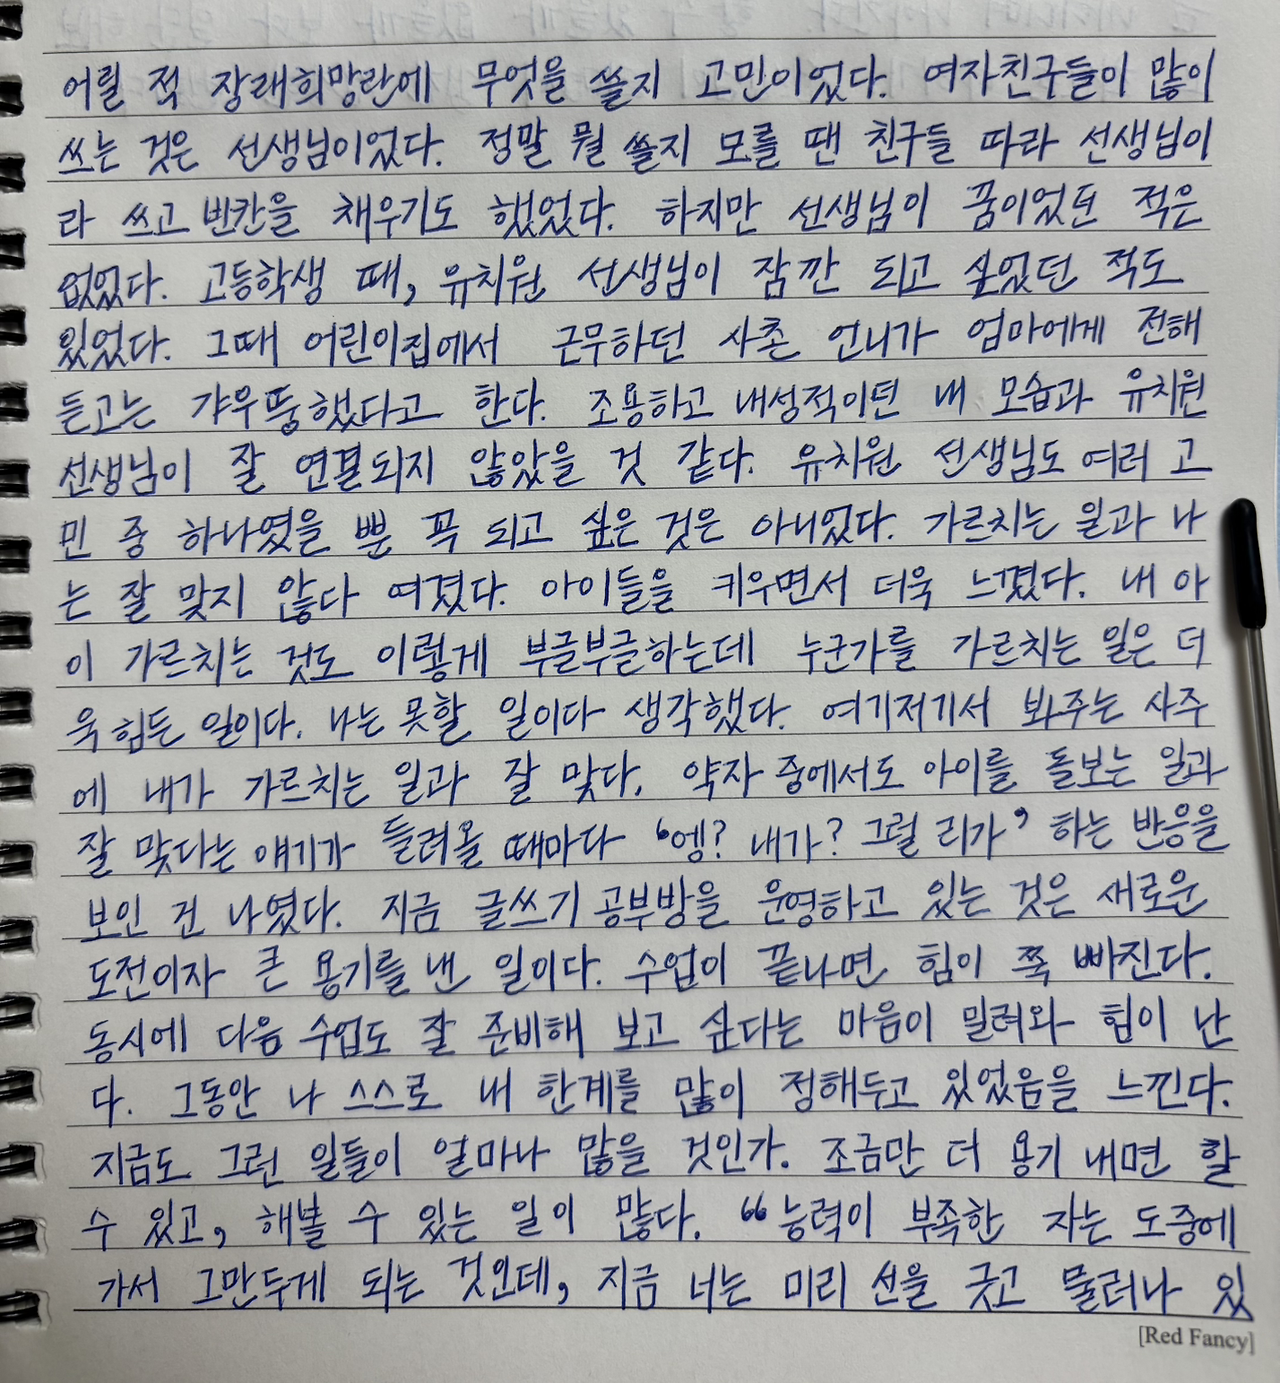 어릴 적 장래희망란에 무엇을 쓸지 고민이었다. 여자친구들이 많이
쓰는 것은 선생님이었다. 정말 뭘 쓸지 모를 땐 친구들 따라 선생님이
라 쓰고 빈칸을 채우기도 했었다. 하지만 선생님이 꿈이었던 적은
없었다. 고등학생 때, 유치원 선생님이 잠깐 되고 싶었던 적도
있었다. 그때 어린이집에서 근무하던 사촌 언니가 엄마에게 전해
듣고는 갸우뚱했다고 한다. 조용하고 내성적이던 내 모습과 유치원
선생님이 잘 연결되지 않았을 것 같다. 유치원 선생님도 여러 고
민 중 하나였을 뿐 꼭 되고 싶은 것은 아니었다. 가르치는 일과 나
는 잘 맞지 않다 여겼다. 아이들을 키우면서 더욱 느꼈다. 내 아
이 가르치는 것도 이렇게 부글부글하는데 누군가를 가르치는 일은 더
욱 힘든 일이다. 나는 못할 일이다 생각했다. 여기저기서 봐주는 사주
에 내가 가르치는 일과 잘 맞다, 약자 중에서도 아이를 돌보는 일과
잘 맞다는 얘기가 들려올 때마다 ‘엥? 내가? 그럴 리가’ 하는 반응을
보인 건 나였다. 지금 글쓰기 공부방을 운영하고 있는 것은 새로운
도전이자 큰 용기를 낸 일이다. 수업이 끝나면 힘이 쭉 빠진다.
동시에 다음 수업도 잘 준비해 보고 싶다는 마음이 밀려와 힘이 난
다. 그동안 나 스스로 내 한계를 많이 정해두고 있었음을 느낀다.
지금도 그런 일들이 얼마나 많을 것인가. 조금만 더 용기 내면 할
수 있고, 해볼 수 있는 일이 많다. “능력이 부족한 자는 도중에
가서 그만두게 되는 것인데, 지금 너는 미리 선을 긋고 물러나 있
[Red Fancy]